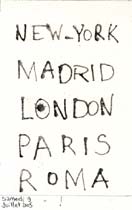 NEW-YORK
MADRID
LONDON
PARIS
ROMA
Samedi 9
Juillet